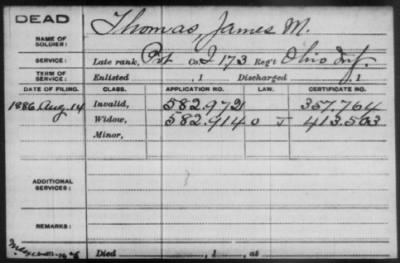 DEAD
NAME OF SOLDIER: Thomas, James M.
SERVICE: Late rank, Pvt Co. I 173 Reg't Ohio Inf.
TERM OF SERVICE: Enlisted , 1 Discharged , 1
DATE OF FILING. CLASS. APPLICATION NO. LAW. CERTIFICATE NO.
1886 Aug. 14 Invalid, 582.972 357.764
Widow, 582.914 O J 413.503
Minor,
ADDITIONAL SERVICES:
REMARKS:
Died , 1 , at